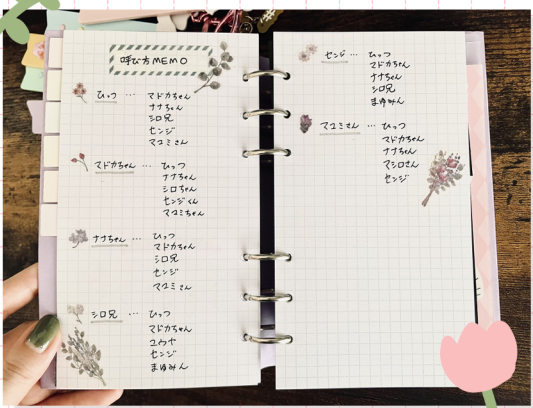 呼び方MEMO
ひっつ … マドカちゃん
ナナちゃん
シロ兄
センジ
マユミさん
マドカちゃん … ひっつ
ナナちゃん
シロちゃん
センジくん
マユミちゃん
ナナちゃん … ひっつ
マドカちゃん
シロ兄
センジ
マユミさん
シロ兄 … ひっつ
マドカちゃん
ユウヤ
センジ
まゆみん
センジ … ひっつ
マドカちゃん
ナナちゃん
シロ兄
まゆみん
マユミさん … ひっつ
マドカちゃん
ナナちゃん
マシロさん
センジ